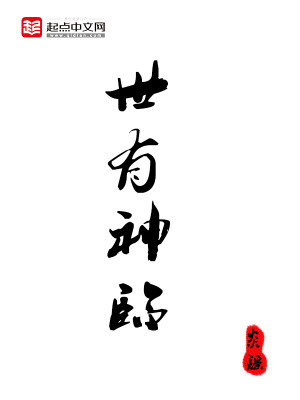 起点中文网
www.qidian.com
世
有
神
临